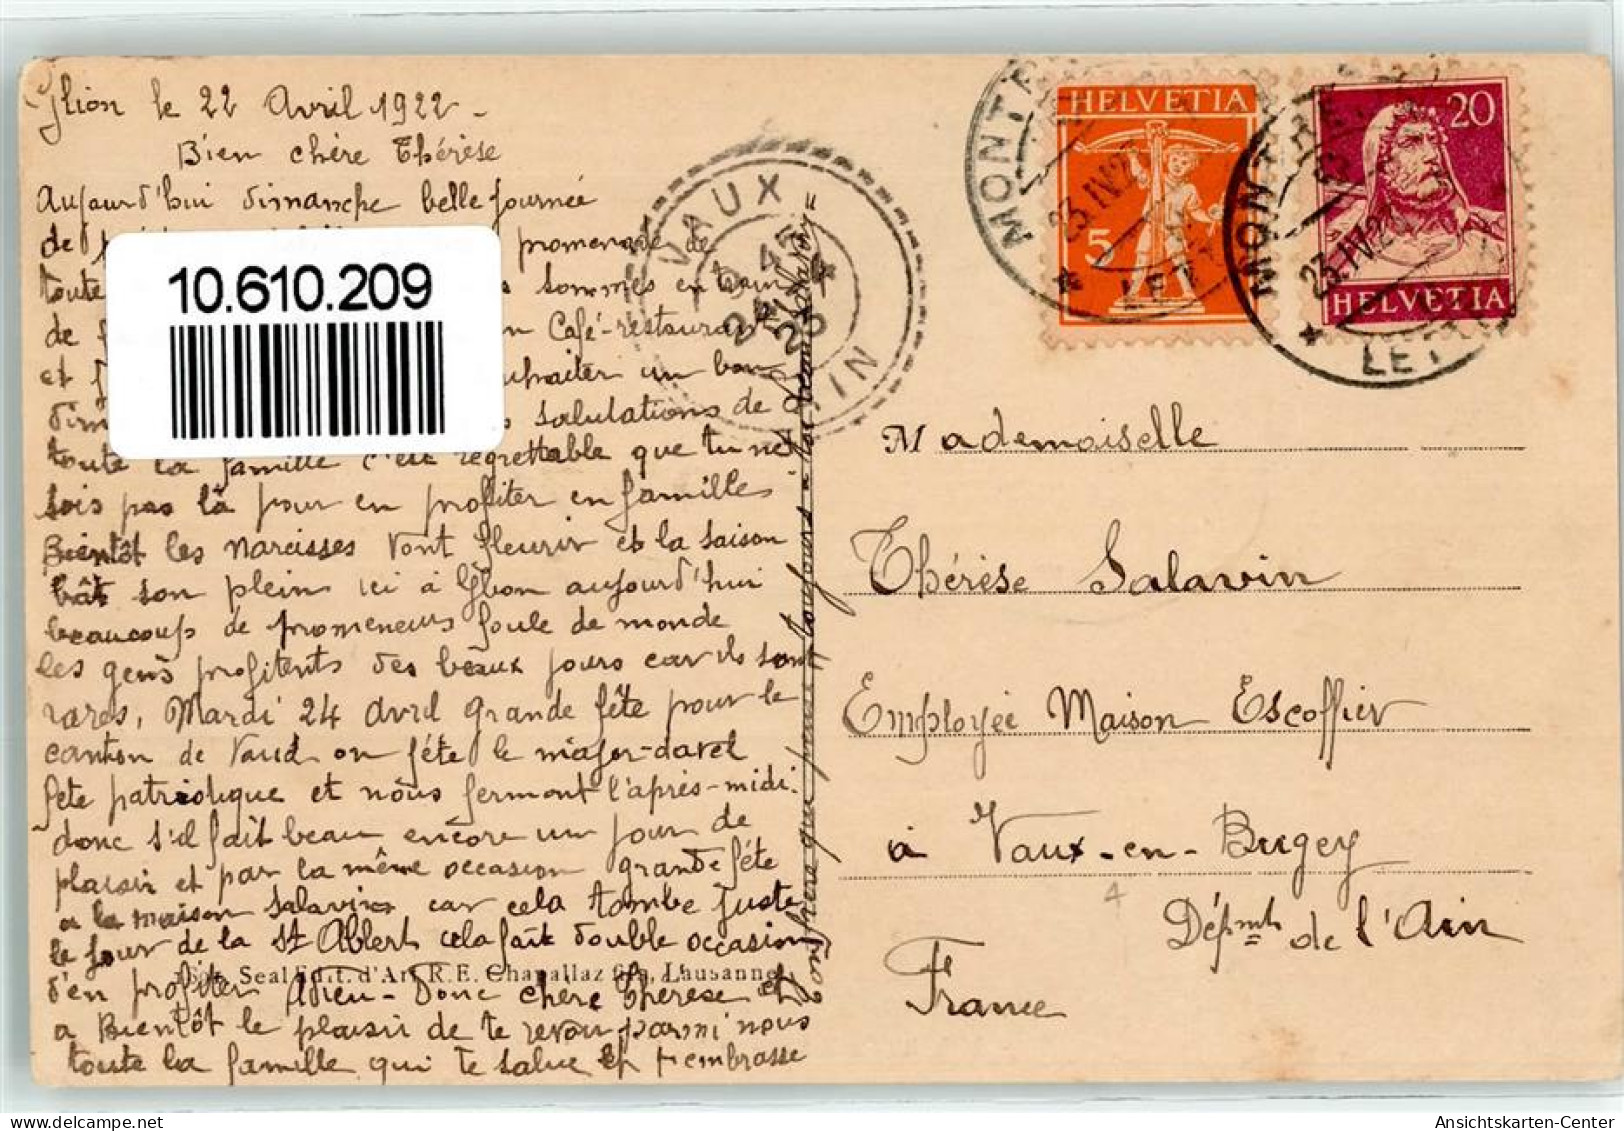 Glion le 22 Avril 1922 -
Bien chère Thérèse
Aujourd'hui dimanche belle journée
de promenade de
toute sommes en train
de Café-restaurant
et souhaiter un bon
salutations de
toute la famille c'est regrettable que tu ne
sois pas là pour en profiter en familles
Bientôt les narcisses vont fleurir et la saison
bât son plein ici à Glion aujourd'hui
beaucoup de promeneurs foule de monde
les gens profitents des beaux jours car ils sont
rares, Mardi 24 avril grande fête pour le
canton de Vaud on fête le major-davel
fête patriotique et nous fermont l'après-midi.
donc s'il fait beau encore un jour de
plaisir et par la même occasion grande fête
a la maison Salavin car cela tombe juste
le jour de la St Albert cela fait double occasion
d'en profiter Adieu - Donc chère Thérèse et
a Bientôt le plaisir de te revoir parmi nous
toute la famille qui te salue et t'embrasse
Ton frère qui pense toujours à toi Salavin =
Seal Edit. d'Art R. E. Chapallaz fils, Lausanne
10.610.209
VAUX
AIN
HELVETIA
5
MONTREUX
23.IV.2
LETT
20
HELVETIA
MONTREUX
23.IV.2
LETT
Mademoiselle
Thérèse Salavin
Employée Maison Escoffier
à Vaux-en-Bugey
4
Dépmt de l'Ain
France
Ansichtskarten-Center